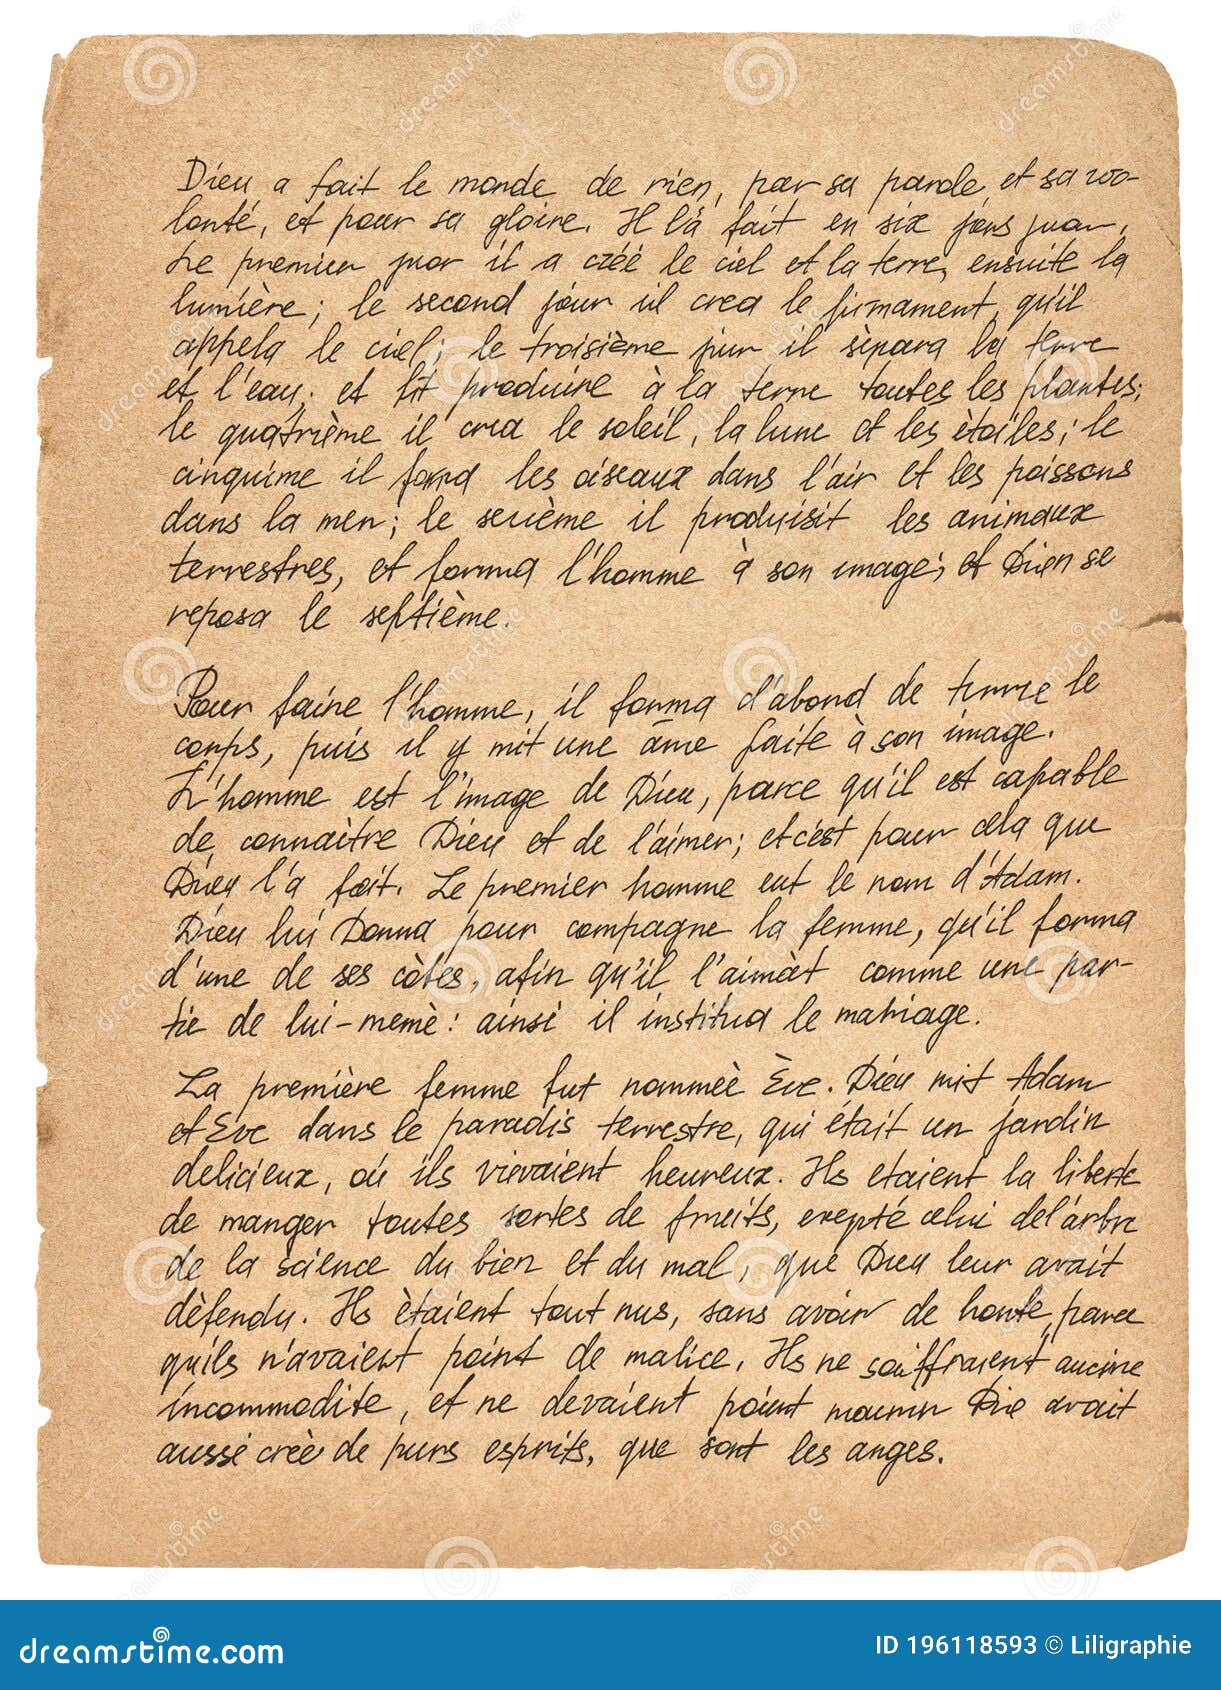 Dieu a fait le monde de rien, par sa parole et sa vo-
lonté, et pour sa gloire. Il l'a fait en six
Le premier juor il a créé le ciel et la terre, ensuite la
lumière; le second jour il crea le firmament, qu'il
appela le ciel; le troisième jiur il sèpara la terre
et l'eau; et fit produire à la terre toutes les plantes;
le quatrième il crea le soleil, la lune et les ètoiles; le
cinquime il forma les oiseaux dans l'air et les poissons
dans la mer; le sexième il produisit les animaux
terrestres, et forma l'homme à son image; et Dieu se
reposa le septième.
Pour faire l'homme, il forma d'abord de terre le
corps, puis il y mit une âme faite à son image.
L'homme est l'image de Dieu, parce qu'il est capable
de connaitre Dieu et de l'aimer; et c'est pour cela que
Dieu l'a fait. Le premier homme eut le nom d'Adam.
Dieu lui Donna pour compagne la femme, qu'il forma
d'une de ses còtes, afin qu'il l'aimàt comme une par-
tie de lui-memè: ainsi il institua le mariage.
La première femme fut nommèè Ève. Dieu mit Adam
et Eve dans le paradis terrestre, qui était un jardin
delicieux, oú ils vivaient heureux. Ils etaient la liberte
de manger toutes sortes de fruits, exepté celui de l'arbre
de la science du bien et du mal, que Dieu leur avait
dèfendu. Ils ètaient tout nus, sans avoir de honte, parce
qu'ils n'avaient point de malice. Ils ne souffraient aucune
incommodite, et ne devaient point mourir Die avait
aussi crèè de purs esprits, que sont les anges.
dreamstime.com
ID 196118593 © Liligraphie